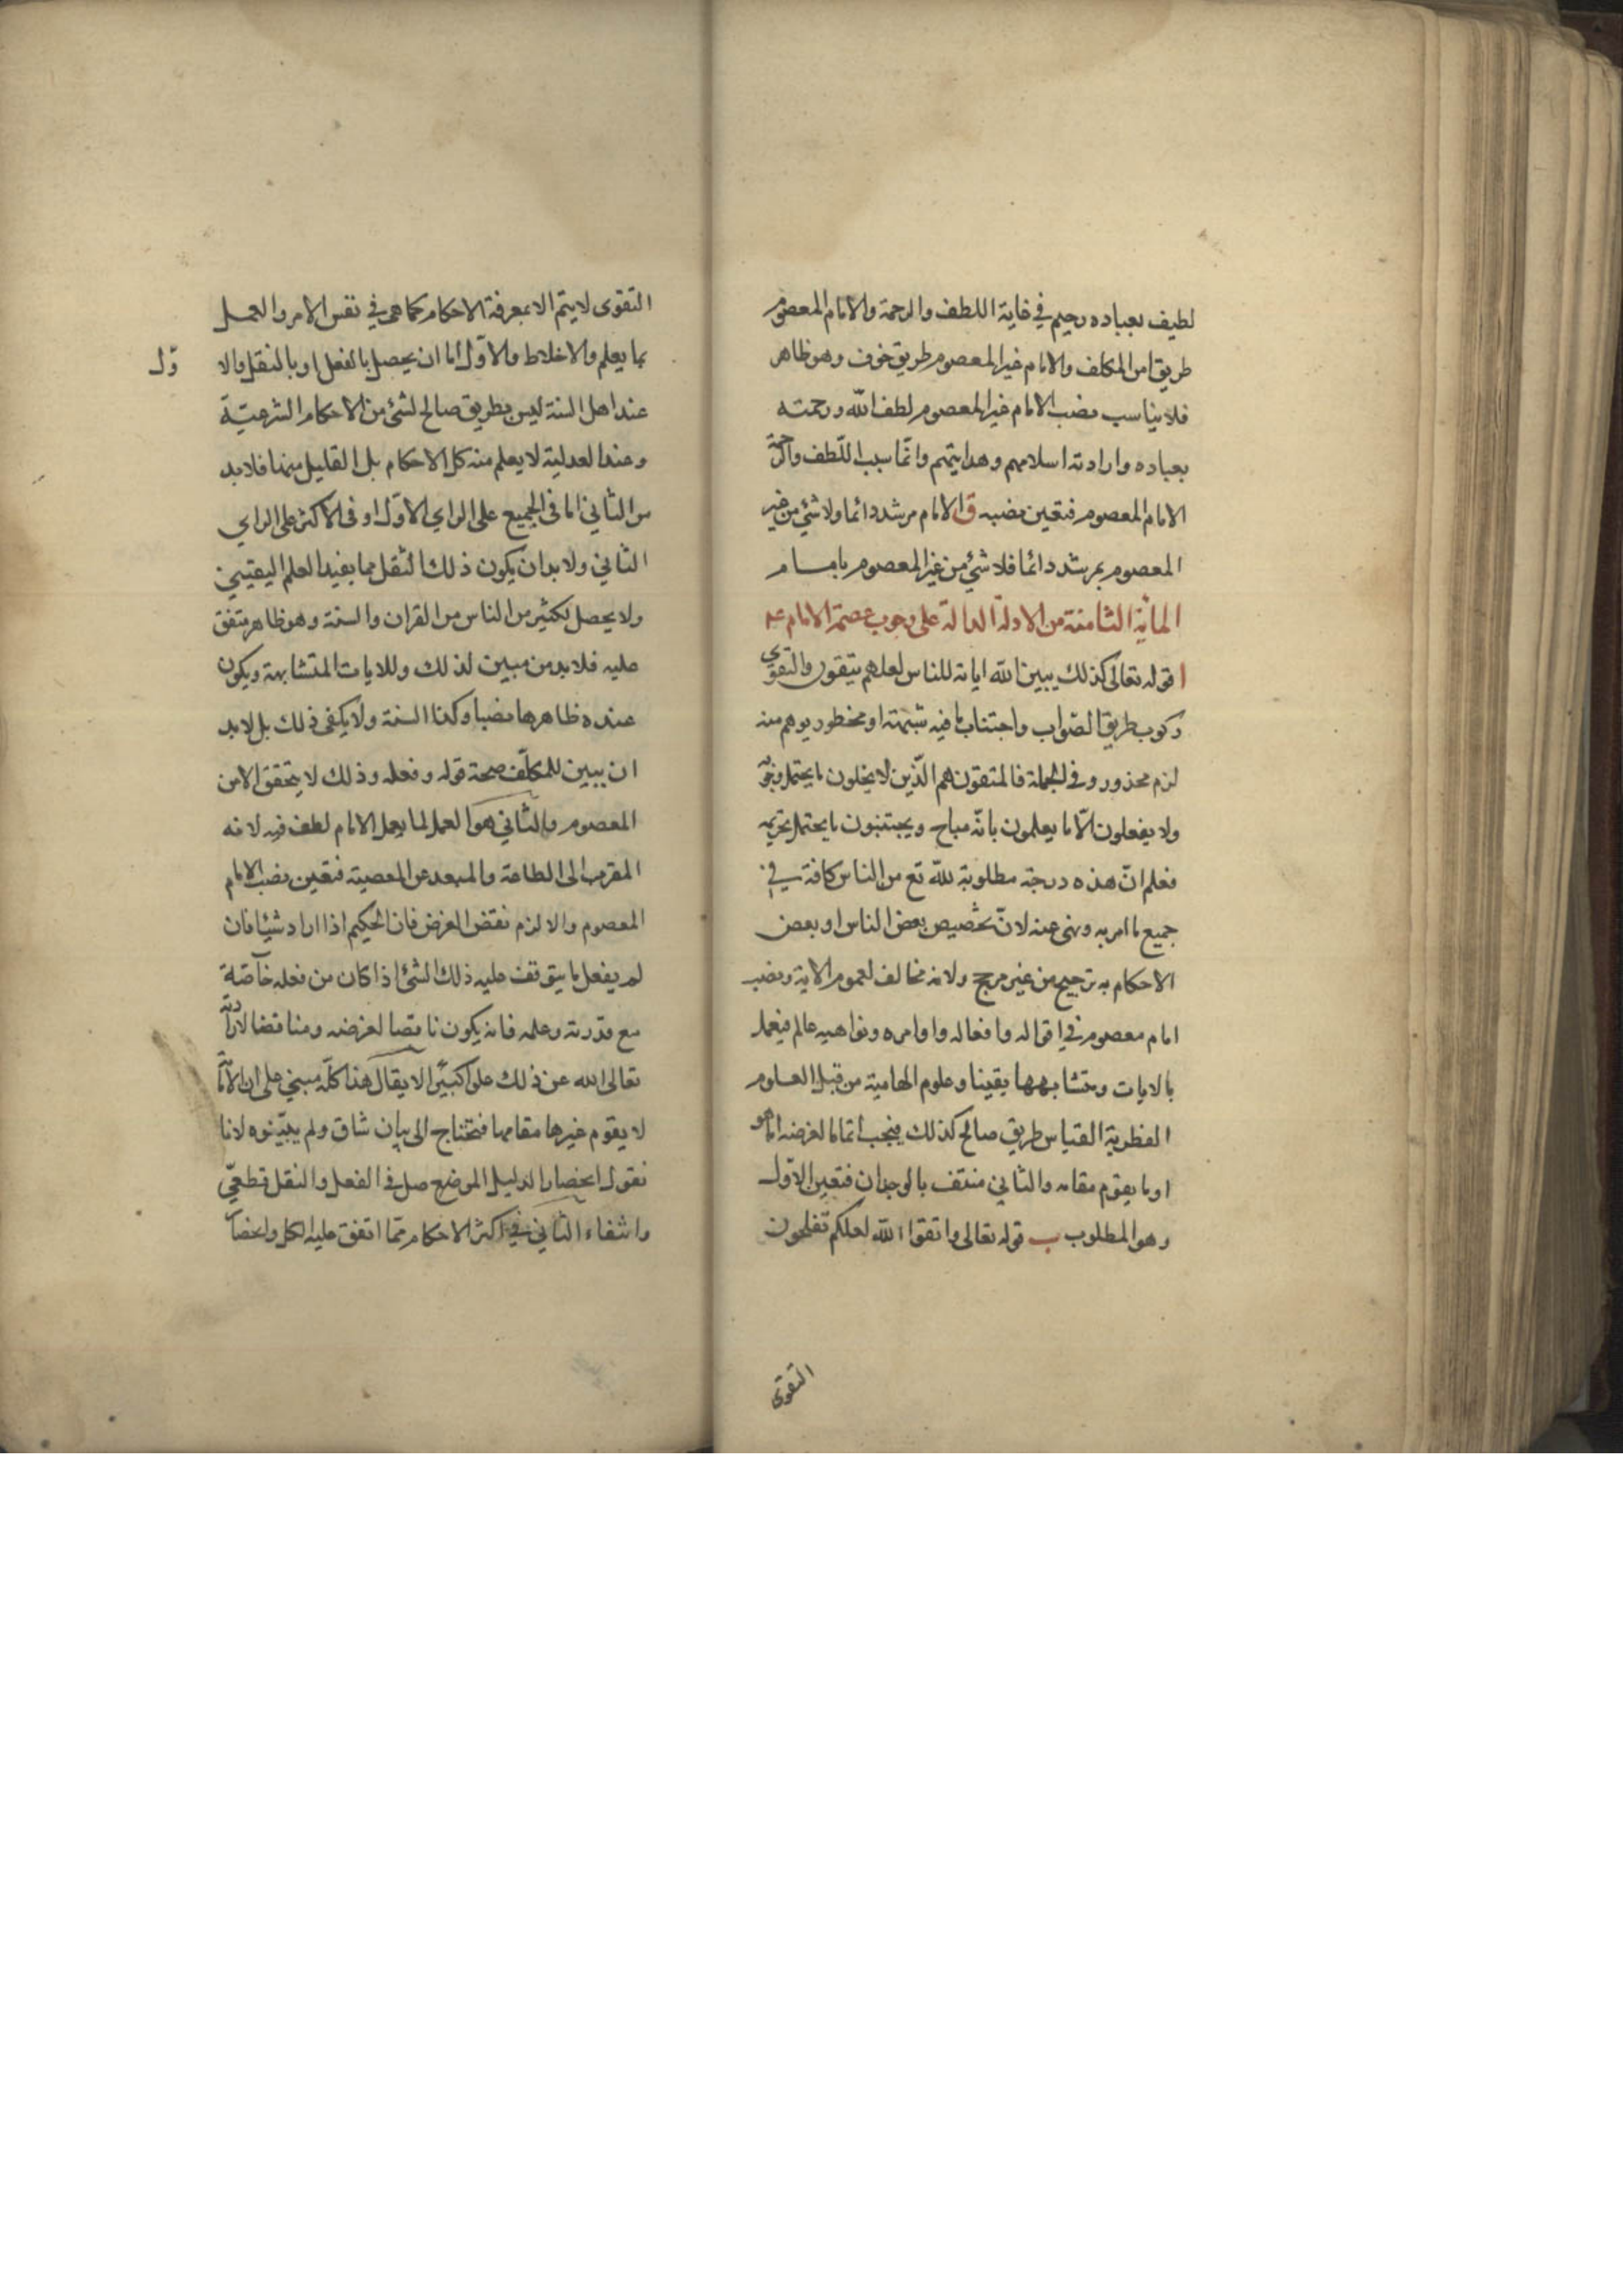 لطيف بعباده رحيم في غاية اللطف والرحمة والامام المعصوم
طريق امن المكلف والامام غير المعصوم طريق خوف وهو ظاهر
فلا يناسب نصب الامام غير المعصوم لطف الله ورحمته
بعباده وارادته اسلامهم وهدايتهم وانما يناسب اللطف والرحمة
الامام المعصوم فتعين نصبه ق الامام مرشد دائما ولا شئ من غير
المعصوم بمرشد دائما فلا شئ من غير المعصوم بامام
المائة الثامنة من الادلة الدالة على وجوب عصمة الامام عم
ا قوله تعالى كذلك يبين الله اياته للناس لعلهم يتقون والتقوى
ركوب طريق الصواب واجتناب ما فيه شبهة او محظور يوهم منه
لزم محذور وفي الجملة فالمتقون هم الذين لا يخلون ما يحتمل وجوبه
ولا يفعلون الا ما يعلمون بانه مباح ويجتنبون ما يحتمل تحريمه
فعلم ان هذه درجة مطلوبة لله تع من الناس كافة في
جميع ما امر به ونهى عنه لان تخصيص بعض الناس او بعض
الاحكام به ترجيح من غير مرجح ولانه مخالف لعموم الاية ونصب
امام معصوم في اقواله وافعاله واوامره ونواهيه عالم فيعمل
بالايات ومتشابهها يقينا وعلوم الهامية من قبيل العلوم
الفطرية القياس طريق صالح كذلك فيجب اتماما لغرضه اما هو
او ما يقوم مقامه والثاني منتف بالوجدان فتعين الاول
وهو المطلوب ب قوله تعالى واتقوا الله لعلكم تفلحون
التقوى
التقوى لا يتم الا بمعرفة الاحكام كما هي في نفس الامر والعمل
بما يعلم والاخلاط والاول اما ان يحصل بالفعل او بالنقل والا
ول
عند اهل السنة ليس بطريق صالح لشئ من الاحكام الشرعية
وعند العدلية لا يعلم منه كل الاحكام بل القليل منها فلا بد
من الثاني اما في الجميع على الراي الاول او في الاكثر على الراي
الثاني ولا بد ان يكون ذلك النقل مما يفيد العلم اليقيني
ولا يحصل لكثير من الناس من القران والسنة وهو ظاهر متفق
عليه فلا بد من مبين لذلك وللايات المتشابهة ويكون
عنده ظاهرها نصا وكذا السنة ولا يكفي ذلك بل لا بد
ان يبين للمكلف صحة قوله وفعله وذلك لا يتحقق الا من
المعصوم والثاني هو العمل لما يعمل الامام لطف فيه لانه
المقرب الى الطاعة والمبعد عن المعصية فتعين نصب الامام
المعصوم والا لزم نقض الغرض فان الحكيم اذا اراد شيئا فان
لم يفعل ما يتوقف عليه ذلك الشئ اذا كان من فعله خاصة
مع قدرته وعلمه فانه يكون ناقصا لغرضه ومناقضا لارادته
تعالى الله عن ذلك علوا كبيرا لا يقال هذا كله مبني على ان الامامة
لا يقوم غيرها مقامها فتحتاج الى بيان شاق ولم يبينوه لانا
نقول انحصار الدليل الموضح صل في الفعل والنقل قطعي
وانتفاء الثاني في اكثر الاحكام مما اتفق عليه الكل وانحصار